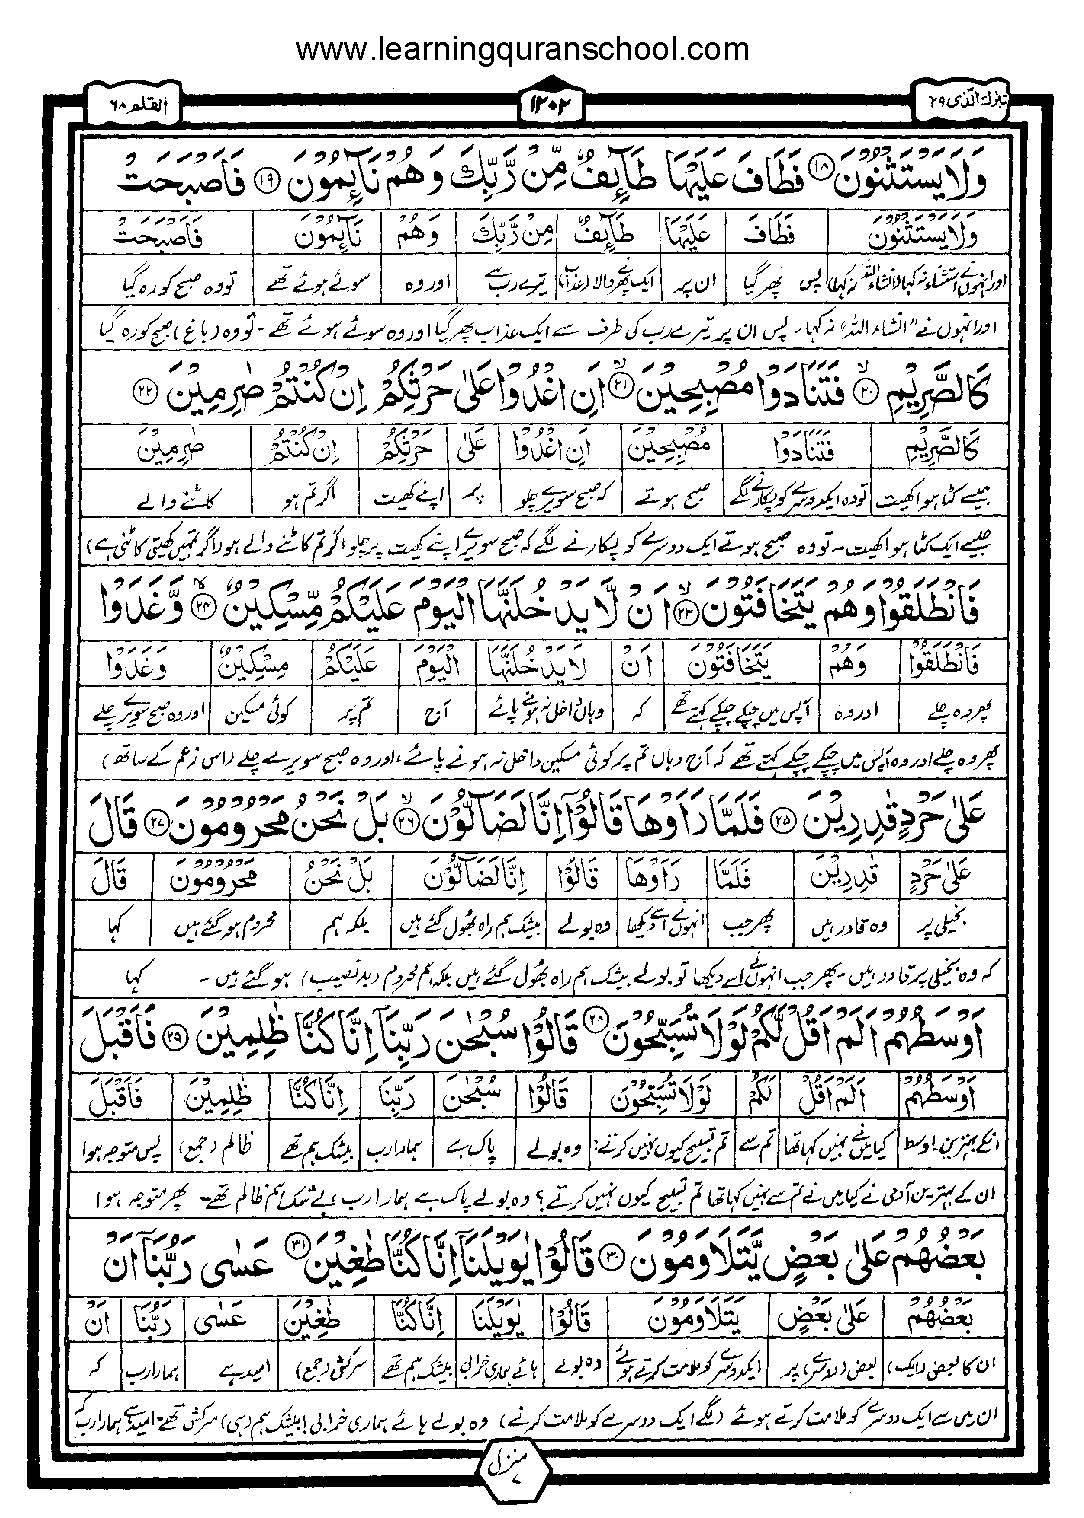 www.learningquranschool.com
تبٰرك الذی ۲۹
۱۲۰۲
القلم ۶۸
وَلَا يَسْتَثْنُوْنَ ۱۸ فَطَافَ عَلَيْهَا طَآئِفٌ مِّنْ رَّبِّكَ وَهُمْ نَآئِمُوْنَ ۱۹ فَاَصْبَحَتْ
وَلَا يَسْتَثْنُوْنَ فَطَافَ عَلَيْهَا طَآئِفٌ مِنْ رَّبِّكَ وَهُمْ نَآئِمُوْنَ فَاَصْبَحَتْ
اور انہوں نے استثناء نہ کہا (انشاء اللہ نہ کہا) پس پھر گیا ان پر ایک پھرنے والا (عذاب) تیرے رب سے اور وہ سوئے ہوئے تھے تو وہ صبح کو رہ گیا
اور انہوں نے "انشاء اللہ" نہ کہا۔ پس ان پر تیرے رب کی طرف سے ایک عذاب پھر گیا اور وہ سوئے ہوئے تھے۔ تو وہ (باغ) صبح کو رہ گیا
كَالصَّرِيْمِ ۲۰ فَتَنَادَوْا مُصْبِحِيْنَ ۲۱ اَنِ اغْدُوْا عَلٰى حَرْثِكُمْ اِنْ كُنْتُمْ صٰرِمِيْنَ ۲۲
كَالصَّرِيْمِ فَتَنَادَوْا مُصْبِحِيْنَ اَنِ اغْدُوْا عَلٰى حَرْثِكُمْ اِنْ كُنْتُمْ صٰرِمِيْنَ
جیسے کٹا ہوا کھیت تو وہ ایک دوسرے کو پکارنے لگے صبح ہوتے کہ صبح سویرے چلو پر اپنے کھیت اگر تم ہو کاٹنے والے
جیسے ایک کٹا ہوا کھیت۔ تو وہ صبح ہوتے ایک دوسرے کو پکارنے لگے کہ صبح سویرے اپنے کھیت پر چلو اگر تم کاٹنے والے ہو (اگر تمہیں کھیتی کاٹنی ہے)
فَانْطَلَقُوْا وَهُمْ يَتَخَافَتُوْنَ ۲۳ اَنْ لَّا يَدْخُلَنَّهَا الْيَوْمَ عَلَيْكُمْ مِّسْكِيْنٌ ۲۴ وَّغَدَوْا
فَانْطَلَقُوْا وَهُمْ يَتَخَافَتُوْنَ اَنْ لَا يَدْخُلَنَّهَا الْيَوْمَ عَلَيْكُمْ مِسْكِيْنٌ وَغَدَوْا
پھر وہ چلے اور وہ آپس میں چپکے چپکے کہتے تھے کہ وہاں داخل نہ ہونے پائے آج تم پر کوئی مسکین اور وہ صبح سویرے چلے
پھر وہ چلے اور وہ آپس میں چپکے چپکے کہتے تھے کہ آج وہاں تم پر کوئی مسکین داخل نہ ہونے پائے، اور وہ صبح سویرے چلے (اس زعم کے ساتھ)
عَلٰى حَرْدٍ قٰدِرِيْنَ ۲۵ فَلَمَّا رَاَوْهَا قَالُوْٓا اِنَّا لَضَآلُّوْنَ ۲۶ بَلْ نَحْنُ مَحْرُوْمُوْنَ ۲۷ قَالَ
عَلٰى حَرْدٍ قٰدِرِيْنَ فَلَمَّا رَاَوْهَا قَالُوْا اِنَّا لَضَآلُّوْنَ بَلْ نَحْنُ مَحْرُوْمُوْنَ قَالَ
بخیلی پر وہ قادر ہیں پھر جب انہوں نے اسے دیکھا وہ بولے بیشک ہم راہ بھول گئے ہیں بلکہ ہم محروم ہو گئے ہیں کہا
کہ وہ بخیلی پر قادر ہیں۔ پھر جب انہوں نے اسے دیکھا تو بولے بیشک ہم راہ بھول گئے ہیں بلکہ ہم محروم (بدنصیب) ہو گئے ہیں۔ کہا
اَوْسَطُهُمْ اَلَمْ اَقُلْ لَّكُمْ لَوْلَا تُسَبِّحُوْنَ ۲۸ قَالُوْا سُبْحٰنَ رَبِّنَآ اِنَّا كُنَّا ظٰلِمِيْنَ ۲۹ فَاَقْبَلَ
اَوْسَطُهُمْ اَلَمْ اَقُلْ لَكُمْ لَوْلَا تُسَبِّحُوْنَ قَالُوْا سُبْحٰنَ رَبِّنَا اِنَّا كُنَّا ظٰلِمِيْنَ فَاَقْبَلَ
انکے بہترین، اوسط کیا میں نے نہیں کہا تھا تم سے تم تسبیح کیوں نہیں کرتے؟ وہ بولے پاک ہے ہمارا رب بیشک ہم تھے ظالم (جمع) پس متوجہ ہوا
ان کے بہترین آدمی نے کہا کیا میں نے تم سے نہیں کہا تھا تم تسبیح کیوں نہیں کرتے؟ وہ بولے پاک ہے ہمارا رب! بے شک ہم ظالم تھے۔ پھر متوجہ ہوا
بَعْضُهُمْ عَلٰى بَعْضٍ يَّتَلَاوَمُوْنَ ۳۰ قَالُوْا يٰوَيْلَنَآ اِنَّا كُنَّا طٰغِيْنَ ۳۱ عَسٰى رَبُّنَآ اَنْ
بَعْضُهُمْ عَلٰى بَعْضٍ يَتَلَاوَمُوْنَ قَالُوْا يٰوَيْلَنَا اِنَّا كُنَّا طٰغِيْنَ عَسٰى رَبُّنَا اَنْ
ان کا بعض (ایک) بعض (دوسرے) پر ایک دوسرے کو ملامت کرتے ہوئے وہ بولے ہائے ہماری خرابی بیشک ہم تھے سرکش (جمع) امید ہے ہمارا رب کہ
ان میں سے ایک دوسرے کو ملامت کرتے ہوئے (لگے ایک دوسرے کو ملامت کرنے) وہ بولے ہائے ہماری خرابی! بیشک ہم (ہی) سرکش تھے۔ امید ہے ہمارا رب کہ
منزل ۷